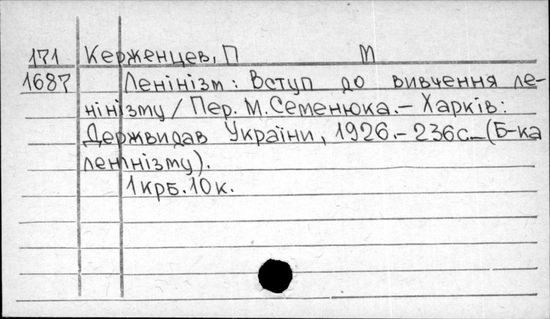 171 Керженцев, П М
1687 Ленінізм: Вступ до вивчення ле-
нінізму / Пер. М. Семенюка. – Харків:
Держвидав України, 1926. – 236с. – (Б-ка
ленінізму).
1 крб. 10 к.